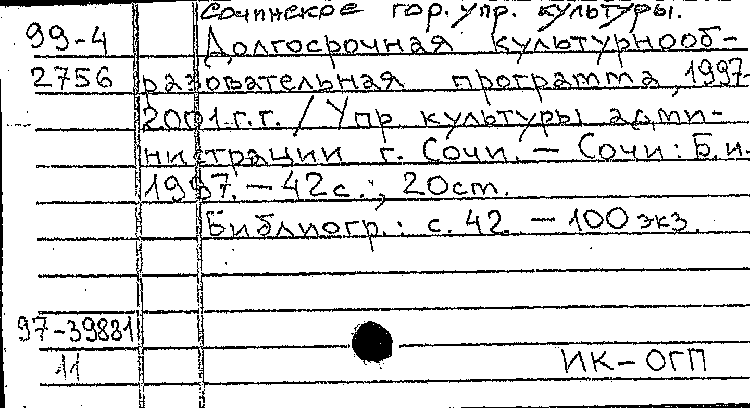 Сочинское гор. упр. культуры.
99-4 Долгосрочная культурнооб-
2756 разовательная программа, 1997-
2001.г.г. / Упр культуры адми-
нистрации г. Сочи. — Сочи: Б.и.
1997. — 42с.:, 20ст.
Библиогр.: с. 42. — 100 экз.
97-39881
11 ИК-ОГП